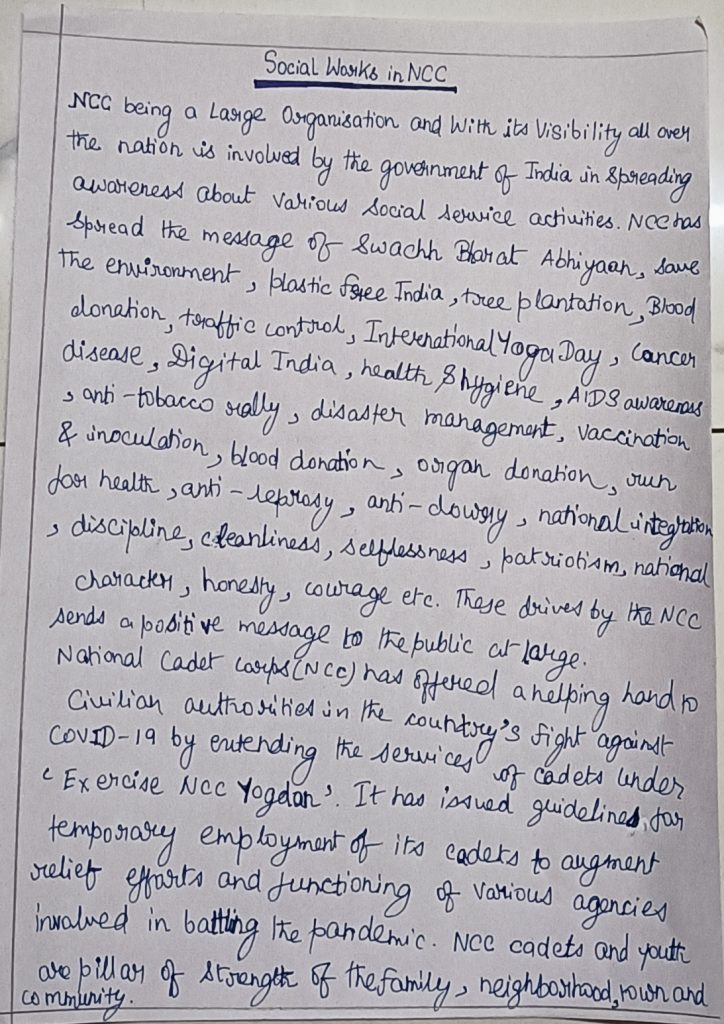 Social Works in NCC
NCC being a Large Organisation and With its Visibility all over
the nation is involved by the government of India in Spreading
awareness about Various Social Service activities. NCC has
Spread the message of Swachh Bharat Abhiyaan, Save
the environment, plastic free India, tree plantation, Blood
donation, traffic control, International Yoga Day, Cancer
disease, Digital India, health & hygiene, AIDS awareness
, anti-tobacco rally, disaster management, vaccination
& inoculation, blood donation, organ donation, run
for health, anti-leprosy, anti-dowry, national integration
, discipline, cleanliness, selflessness, patriotism, national
character, honesty, courage etc. These drives by the NCC
sends a positive message to the public at large.
National Cadet Corps (NCC) has offered a helping hand to
Civilian authorities in the country's fight against
COVID-19 by extending the services of cadets under
'Exercise NCC Yogdan'. It has issued guidelines for
temporary employment of its cadets to augment
relief efforts and functioning of various agencies
involved in battling the pandemic. NCC cadets and youth
are pillar of strength of the family, neighborhood, town and
community.